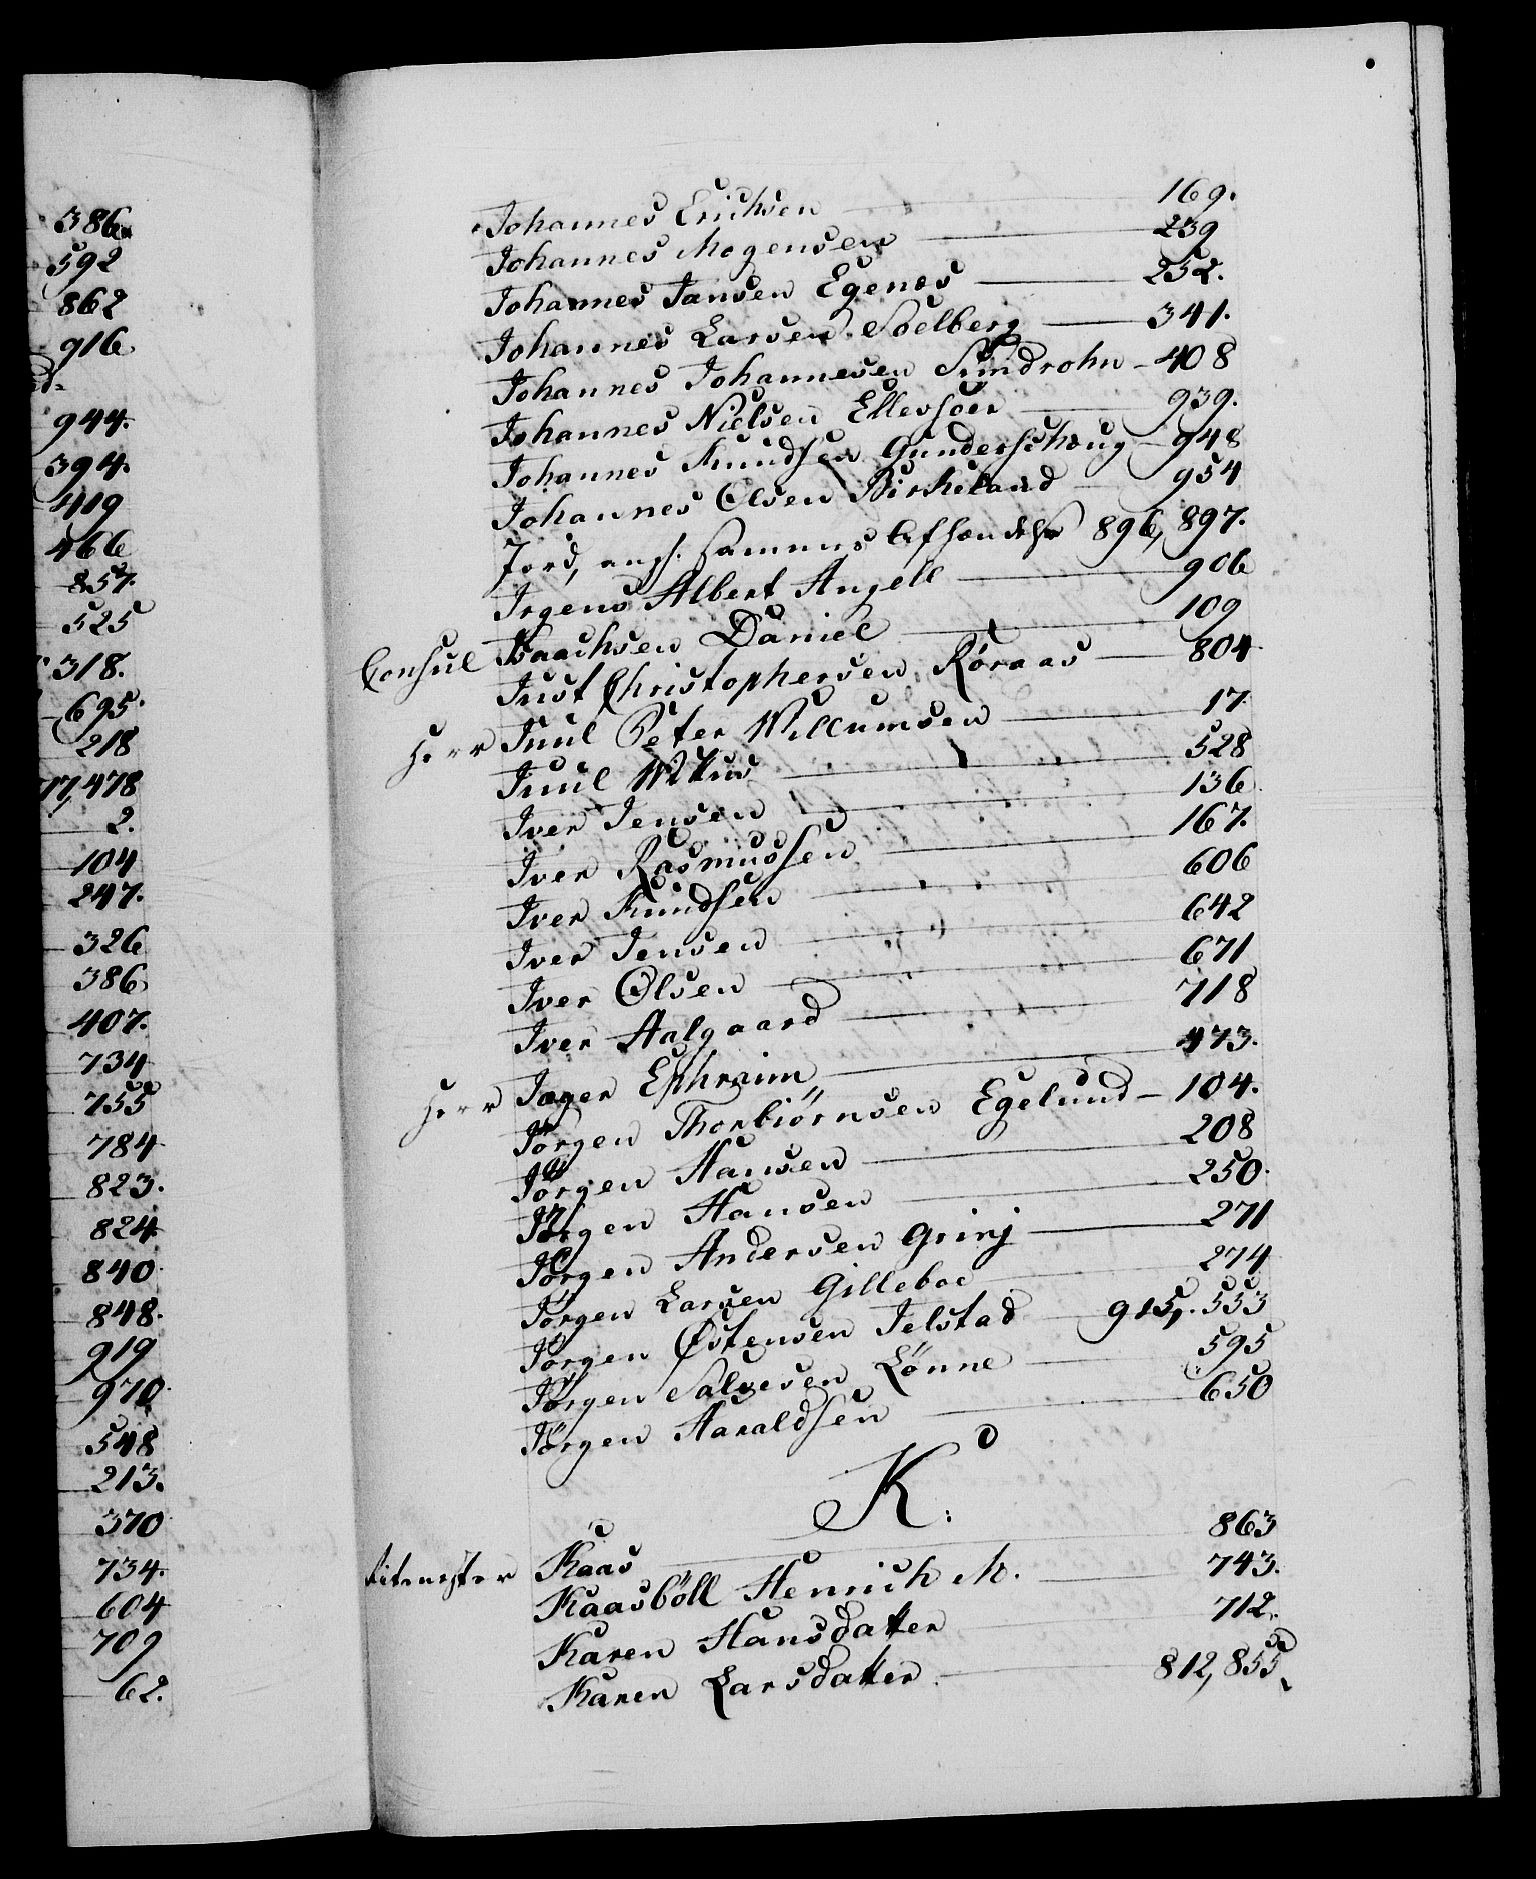 386
592
862
916
944.
394.
419
466
857.
525
318.
695.
218
77,478
2.
104
247.
326
386
407.
734
755
784
823.
824
840
848.
919
970
548
213.
370
734.
604
709
62.
Johannes Erichsen 169.
Johannes Mogensen 239
Johannes Jansen Egenes 252.
Johannes Larsen Soelberg 341.
Johannes Johannesen Sundrohn 408
Johannes Nielsen 939.
Johannes Knudsen Gunderschoug 948
Johannes Olsen Birkeland 954
Jord, ang. sammes Afhændelse 896, 897.
Irgens Albert Angell 906
Consul Isaachsen Daniel 109
Just Christophersen Røraas 804
Herr Juul Peter Willumsen 17.
Juul 528
Iver Jensen 136
Iver Rasmussen 167.
Iver Knudsen 606
Iver Jensen 642
Iver Olsen 671
Iver Aalgaard 718
Herr Jæger Ephraim 473.
Jörgen Thorbiörnsen Egelund 104.
Jörgen Hansen 208
Jörgen Hansen 250.
Jörgen Andersen 271
Jörgen Larsen Gilleboe 274
Jörgen Østensen Jelstad 915,. 553
Jörgen Salvesen Lönne 595
Jörgen Haraldsen 650
K:
Ritmester Kaas 863
Kaasböll Henrich M. 743.
Karen Hansdatter 712.
Karen Larsdatter 812, 855